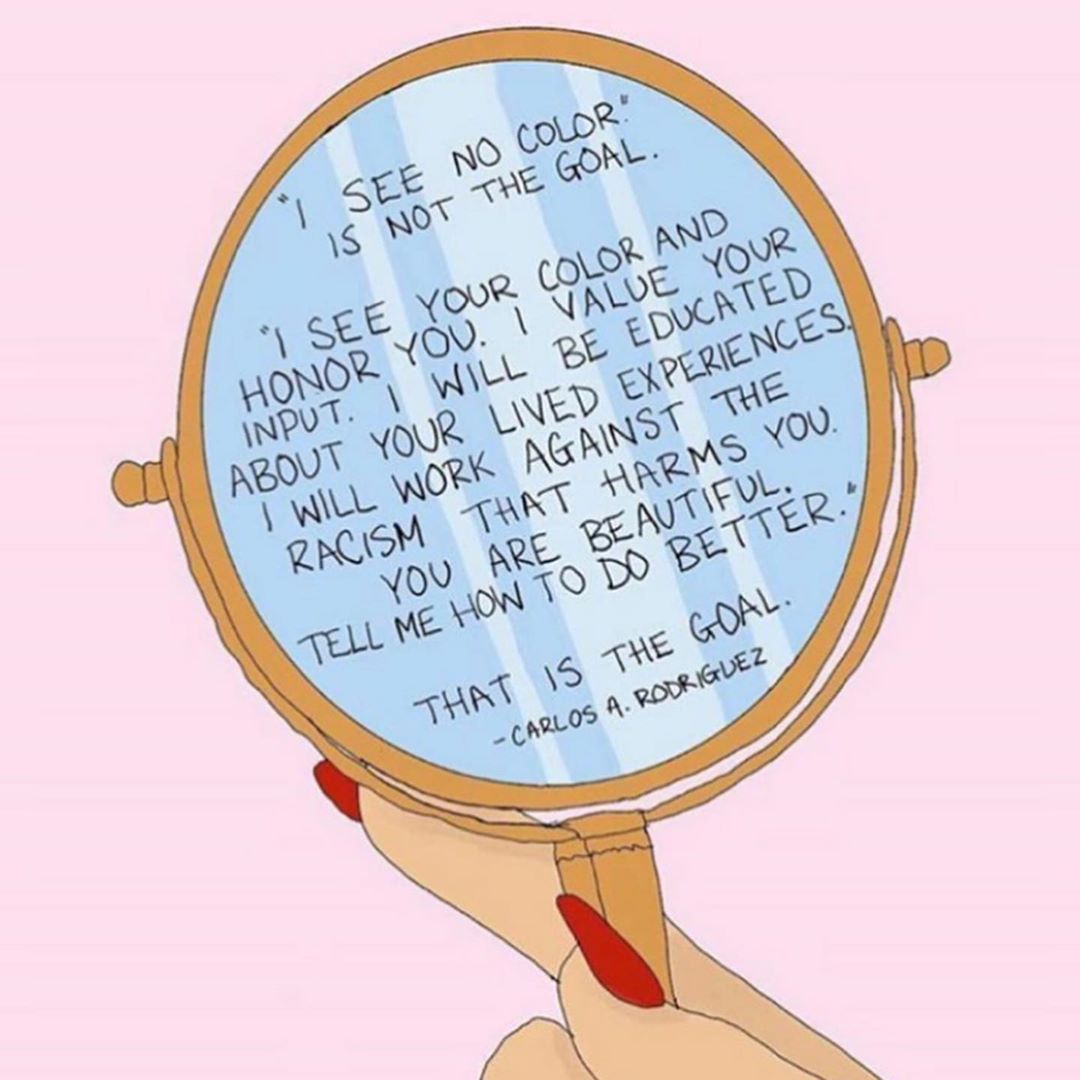 "I SEE NO COLOR."
IS NOT THE GOAL.
"I SEE YOUR COLOR AND
HONOR YOU. I VALUE YOUR
INPUT. I WILL BE EDUCATED
ABOUT YOUR LIVED EXPERIENCES.
I WILL WORK AGAINST THE
RACISM THAT HARMS YOU.
YOU ARE BEAUTIFUL.
TELL ME HOW TO DO BETTER."
THAT IS THE GOAL.
-CARLOS A. RODRIGUEZ